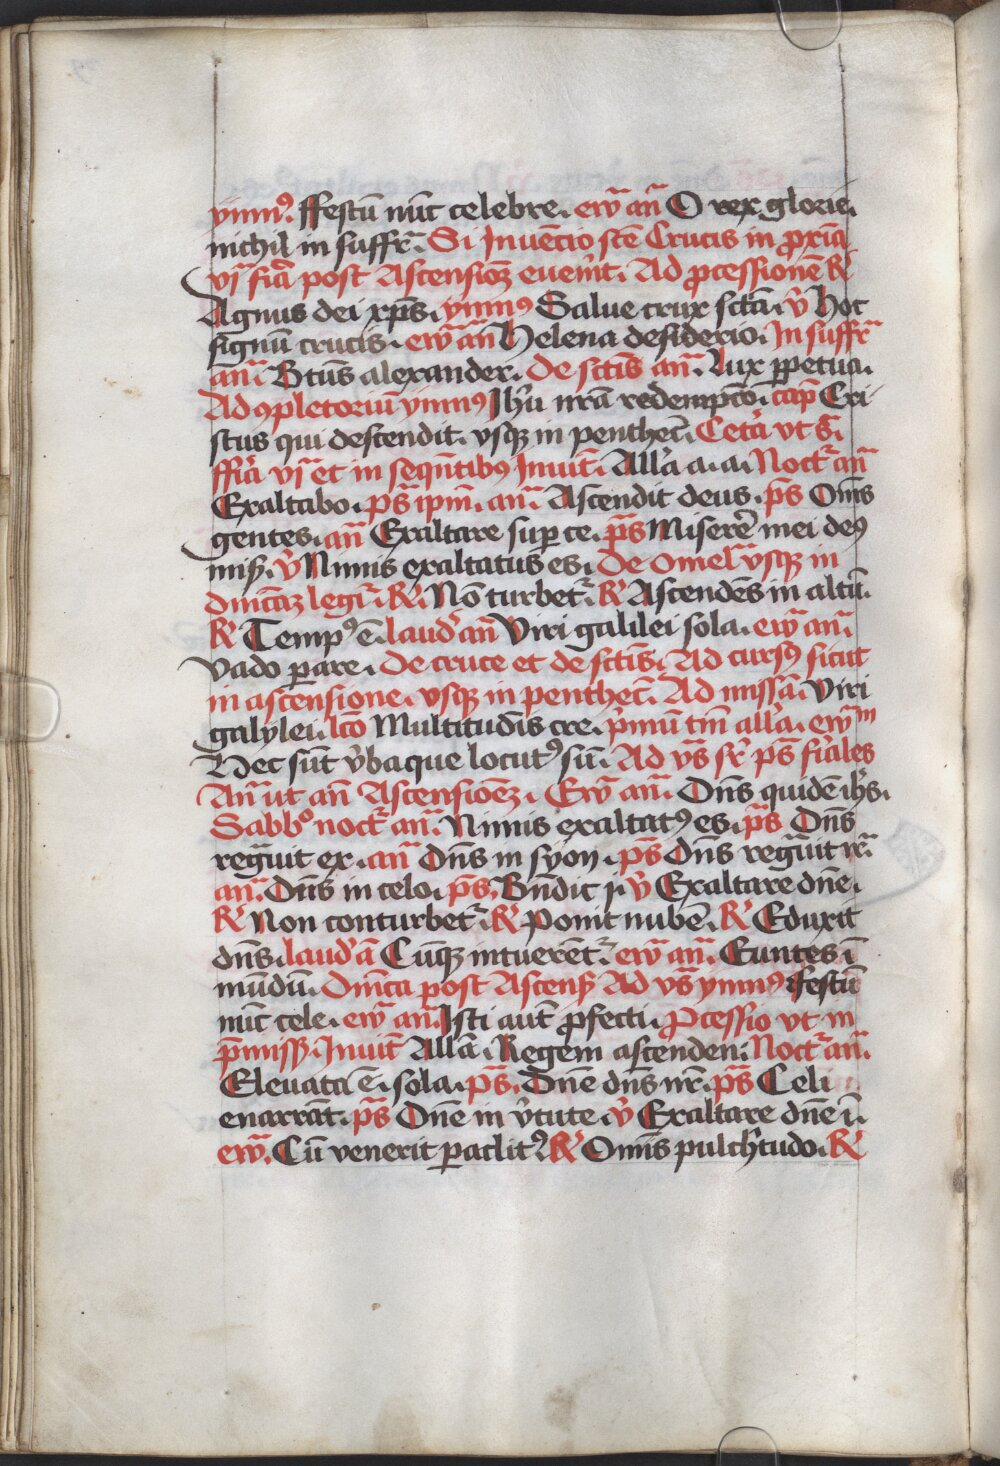 ymnꝰ. ffestū nūc celebre. ew̄ an̄ O rex glorie.
nichil in suffr̄. Si Inuēcio stē Crucis in ꝓxīa
vj fīa post Ascensiōꝫ euen̄it. Ad ꝓcessionē ℟
Agnus dei xp̄s. ymnꝰ Salue crux sctā. ℣ hoc
signū crucis. ew̄ an̄ helena desiderio. In suffr̄
an̄. Btūs alexander. De sctīs an̄. Lux ꝑpetua.
Ad ꝯpletoriū ymnꝰ Jhū nrā redempcō. cap̄ Cri
stus qui descendit. vsqꝫ in penthec̄. Cetā vt s̄.
ffīa vj et in seqn̄tibꝰ Inuit̄. All'a a. a. Noct̄ an̄
Exaltabo. ps̄ ipm̄. an̄. Ascendit deus. ps̄ Om̄s
gentes. an̄ Exaltare suꝑ ce. ps̄ Miserē mei deꝰ
mis̄. ℣ Nimis exaltatus es. De omel̄ vsqꝫ in
dn̄icaꝫ legr̄. ℟. Nō turbet̄. ℟ Ascendēs in altū.
℟ Tempꝰ ē. laud' an̄ Viri galilei sola. ew̄ an̄.
Vado ꝑare. De cruce et de sctīs. Ad cursꝰ sicut
in ascensione. vsqꝫ in penthec̄. Ad missā. Viri
galylei. lcō Multitudīs cre. p̄mū tm̄ all'a. ew̄m
Hec sūt v̄ba que locutꝰ sū. Ad vs̄ sr̄ ps̄ fiāles
An̄ ut an̄ Ascensiōeꝫ. Ew̄ an̄. Dn̄s quidē ihs̄.
Sabbō noct̄ an̄. Nimis exaltatꝰ es. ps̄ Dn̄s
regnāuit ex. an̄ Dn̄s in syon. ps̄ Dn̄s regnāuit ir̄.
an̄. Dn̄s in celo. ps̄. Bn̄dic j. ℣ Exaltare dn̄e.
℟ Non conturbet̄. ℟ Ponit nubē. ℟ Eduxit
dn̄s. laud' ā Cūqꝫ intuerēt̄. ew̄ an̄. Euntes ī
mūdū. Dn̄ica post Ascens̄ Ad vs̄ ymnꝰ ffestū
nūc cele. ew̄ an̄. Isti aut̄ ꝓfecti. Ꝓcessio vt in
p̄miss̄. Inuit̄ Allā. Regem ascenden. Noct̄ an̄.
Eleuata ē. sola. ps̄. Dn̄e dn̄s nr̄. ps̄ Celi
enarrāt. ps̄ Dn̄e in v̄tute. ℣ Exaltare dn̄e ī.
ew̄. Cū venerit paclitꝰ ℟ Om̄is pulch'tudo. ℟